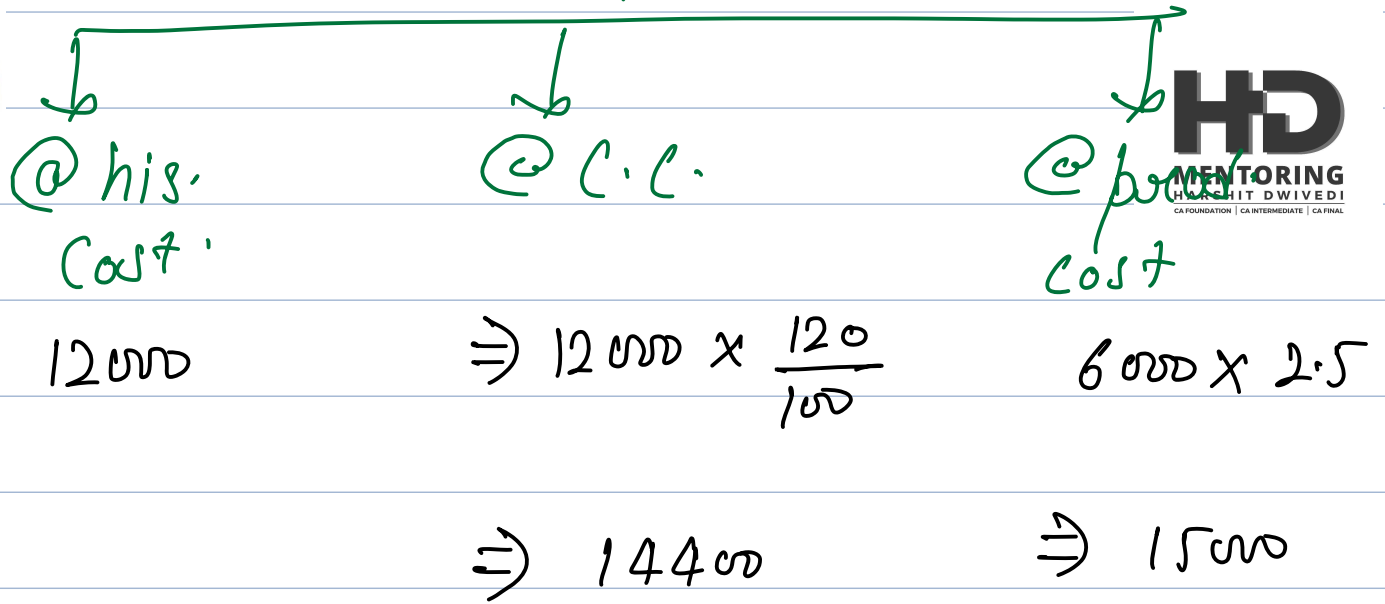 @ his. @ C.C. @ prod.
Cost. cost
HD
MENTORING
HARSHIT DWIVEDI
CA FOUNDATION | CA INTERMEDIATE | CA FINAL
12000 ⇒ 12000 × 120/100 6000 × 2.5
⇒ 14400 ⇒ 15000